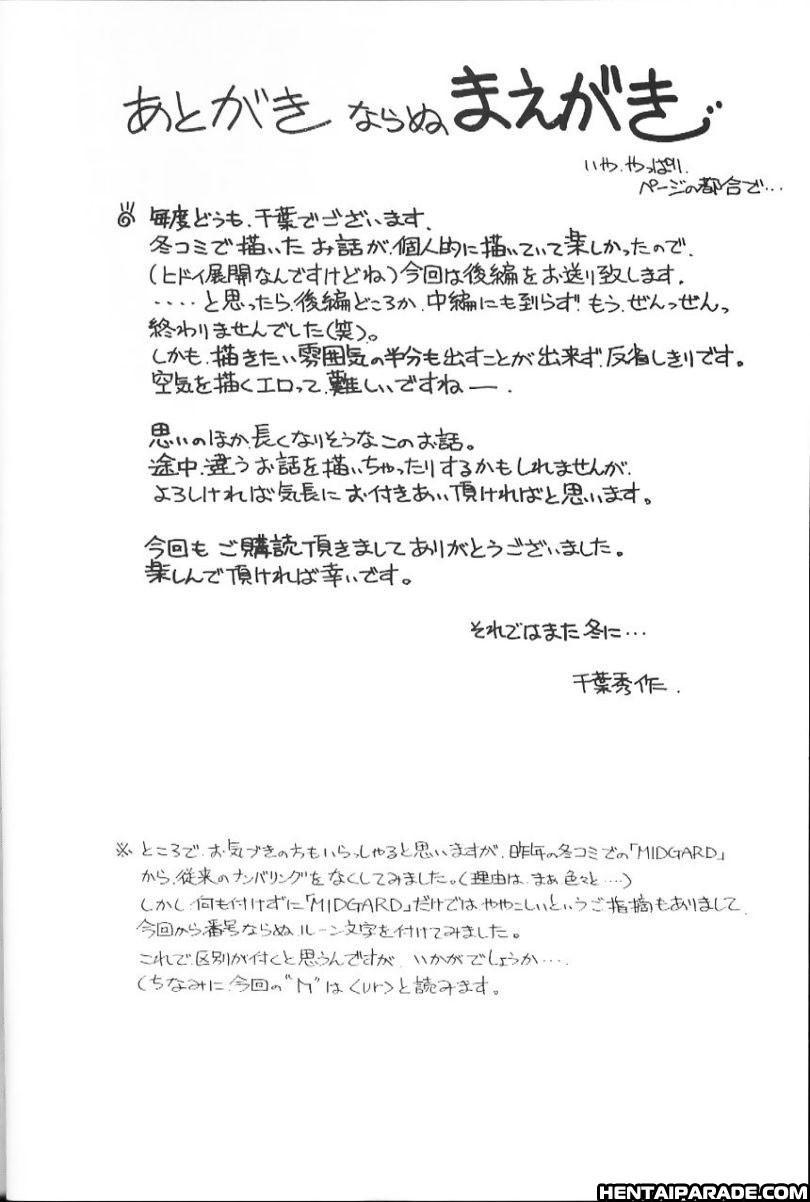 あとがき ならぬ まえがき
いや、やっぱり、
ページの都合で…
毎度どうも、千葉でございます、
冬コミで描いたお話が、個人的に描いていて楽しかったので、
(ヒドイ展開なんですけどね)今回は後編をお送り致します、
‥‥と思ったら、後編どころか、中編にも到らず!もう、ぜんっぜんっ
終わりませんでした(笑)。
しかも、描きたい雰囲気の半分も出すことが出来ず、反省しきりです。
空気を描くエロって、難しいですねー、
思いのほか、長くなりそうなこのお話。
途中、違うお話を描いちゃったりするかもしれませんが、
よろしければ気長にお付きあい頂ければと思います。
今回もご購読頂きましてありがとうございました。
楽しんで頂ければ幸いです。
それではまた冬に…
千葉秀作、
※ ところで、お気づきの方もいらっしゃると思いますが、昨年の冬コミでの「MIDGARD」
から、従来のナンバリングをなくしてみました。(理由は、まぁ色々と‥‥)
しかし何も付けずに「MIDGARD」だけではややこしいというご指摘もありまして、
今回から番号ならぬ、ルーン文字を付けてみました。
これで区別が付くと思うんですが、いかがでしょうか‥‥
(ちなみに、今回の"ᚢ"は<ur>と読みます。
HENTAIPARADE.COM